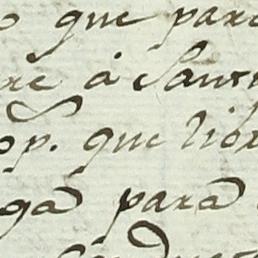 que para
re á Santi
op. que libr
ga para